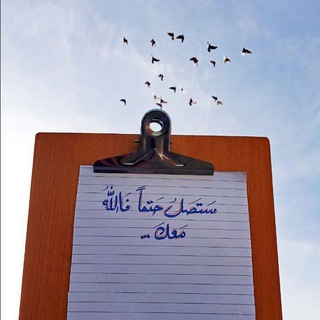 سَتصلُ حَتماً فَاللّٰهُ
مَعكَ ...